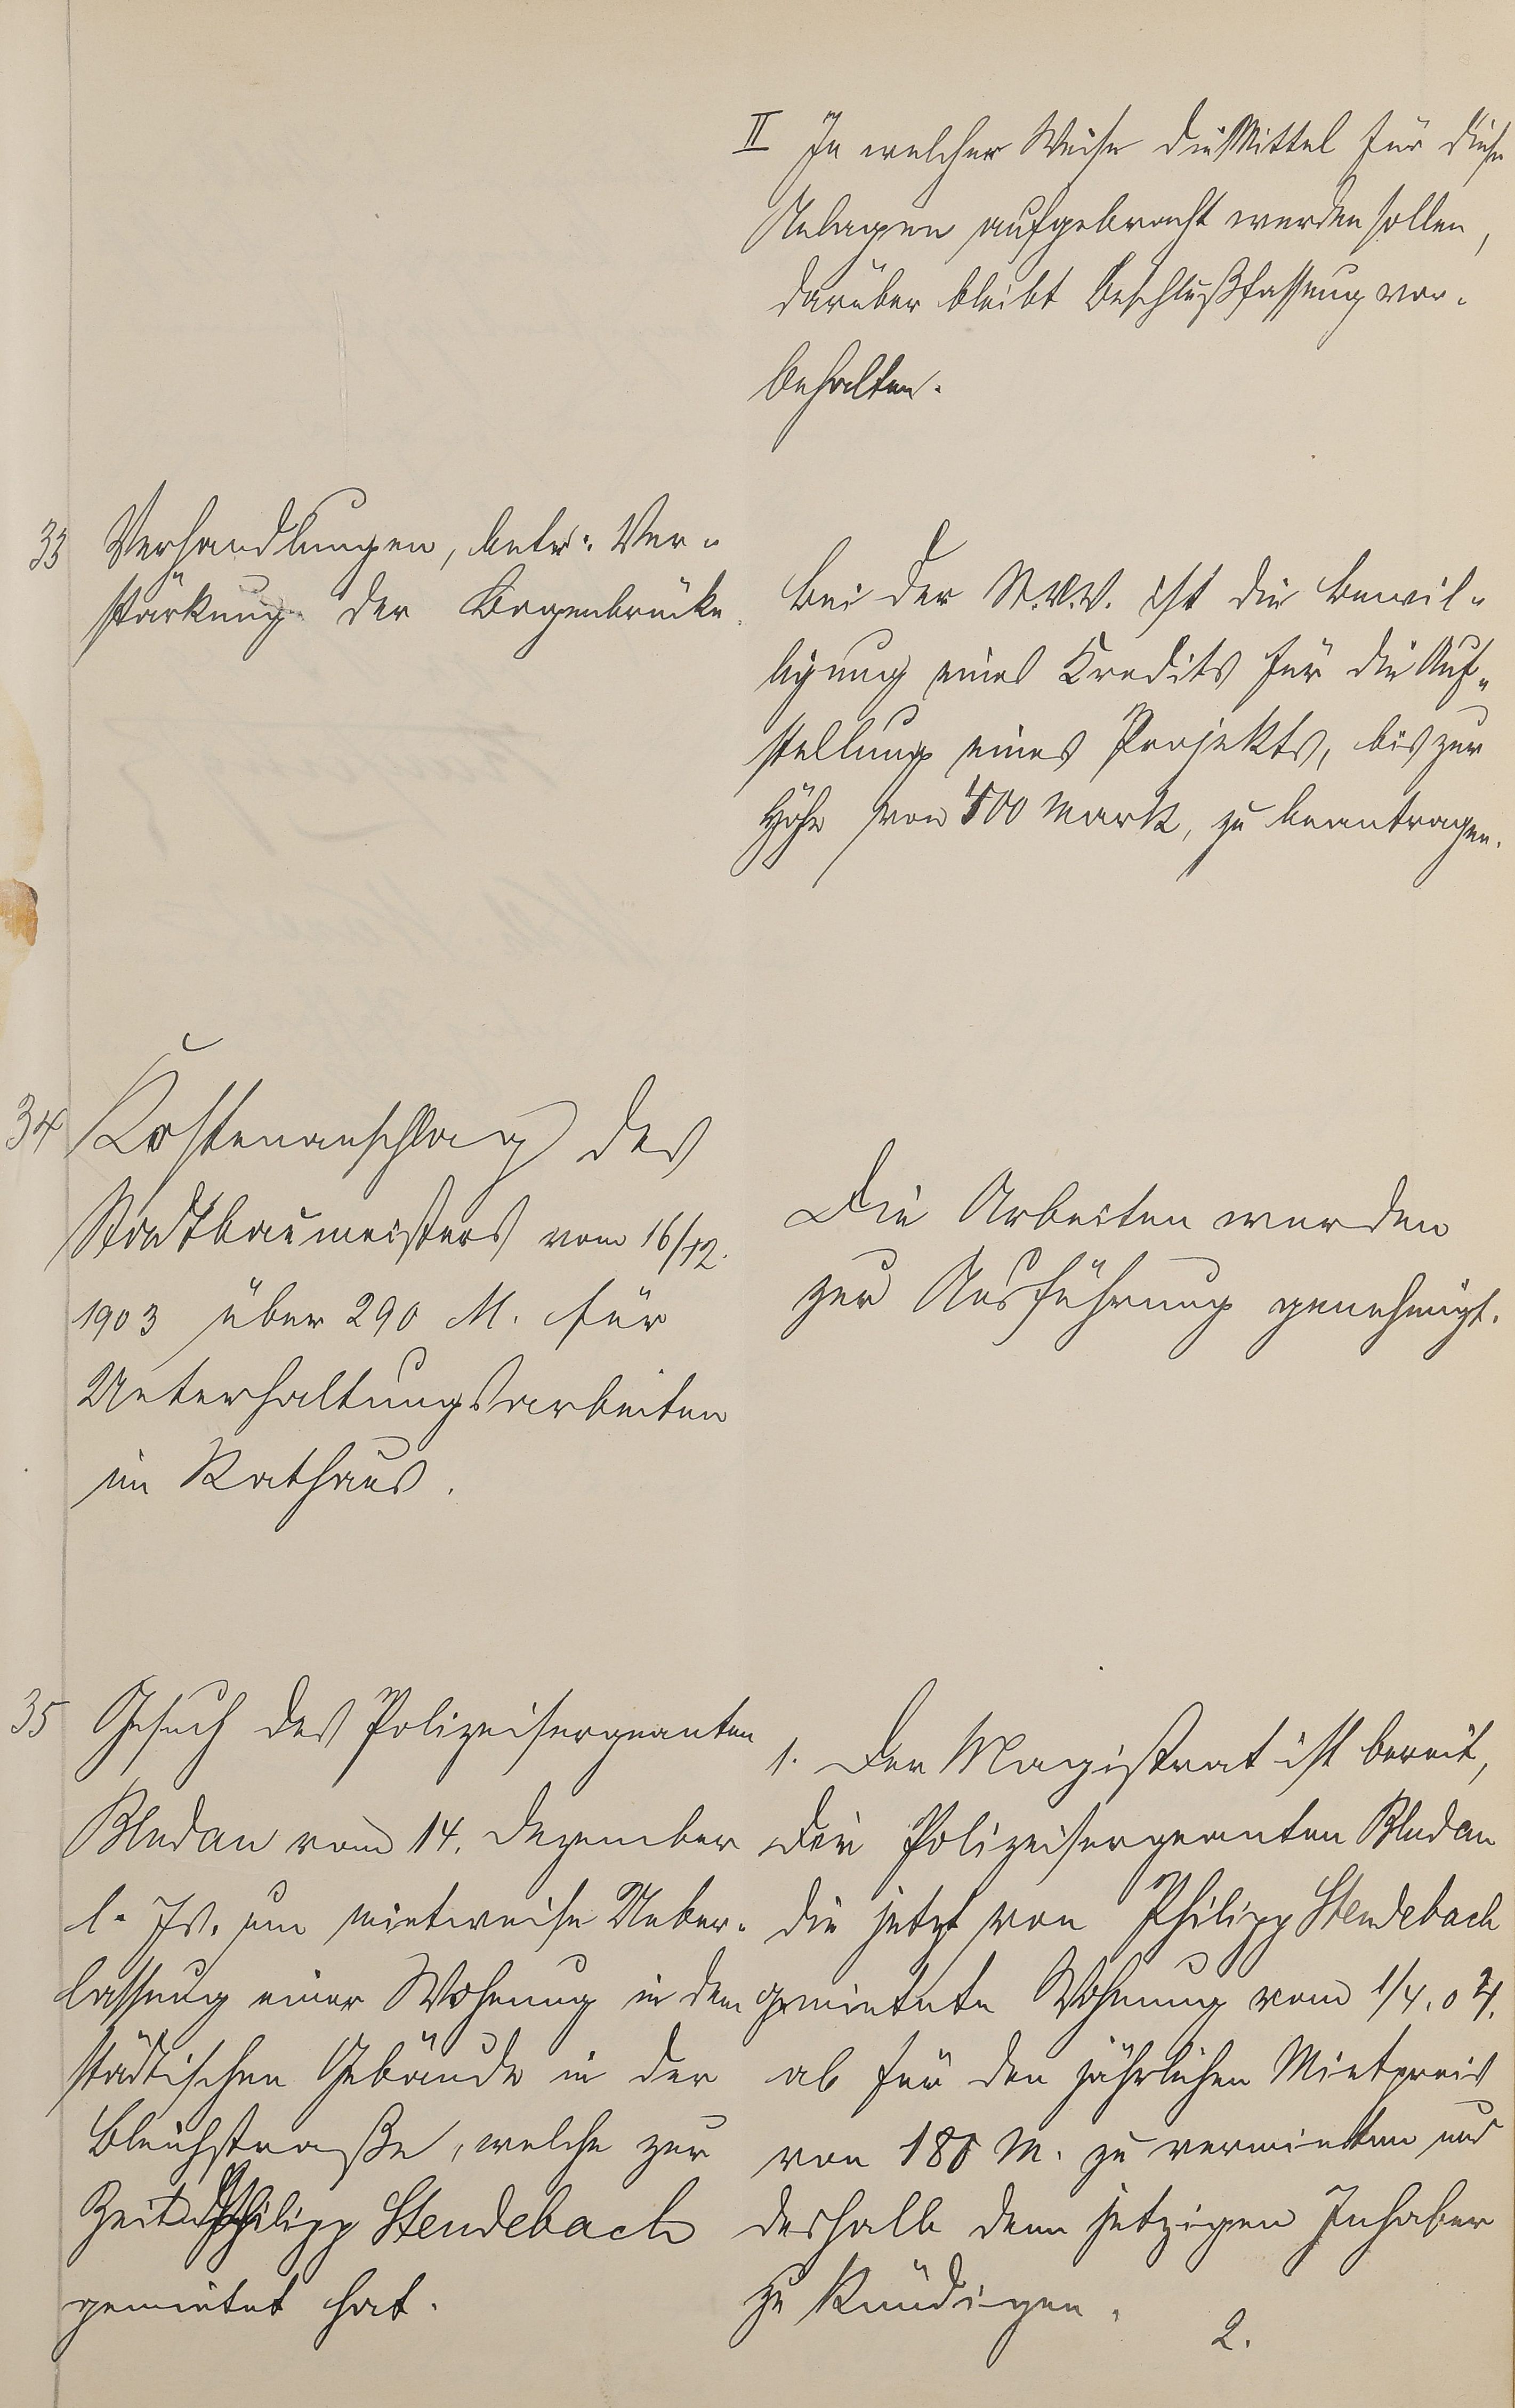 II In welcher Weise die Mittel für diese
Anlagen aufgebracht werden sollen,
darüber bleibt Beschlußfassung vor-
behalten.
33 Verhandlungen, betr. Ver-
stärkung der Bogenbrücke.
Bei der St.V.V. ist die Bewil-
ligung eines Kredits für die Auf-
stellung eines Projekts, bis zur
Höhe von 400 Mark, zu beantragen.
34 Kostenanschlag des
Stadtbaumeisters vom 16/12.
1903 über 290 M. für
Unterhaltungsarbeiten
im Rathaus.
Die Arbeiten werden
zur Ausführung genehmigt.
35 Gesuch des Polizeisergeanten
Bledau vom 14. Dezember
l. Js. um mietweise Ueber-
lassung einer Wohnung in dem
städtischen Gebäude in der
Bleichstraße, welche zur
Zeit Philipp Stendebach
gemietet hat.
1. Der Magistrat ist bereit,
den Polizeisergeanten Bledau
die jetzt von Philipp Stendebach
gemietete Wohnung vom 1/4.04.
ab für den jährlichen Mietpreis
von 180 M. zu vermietten und
deshalb dem jetzigen Inhaber
zu kündigen.
2.